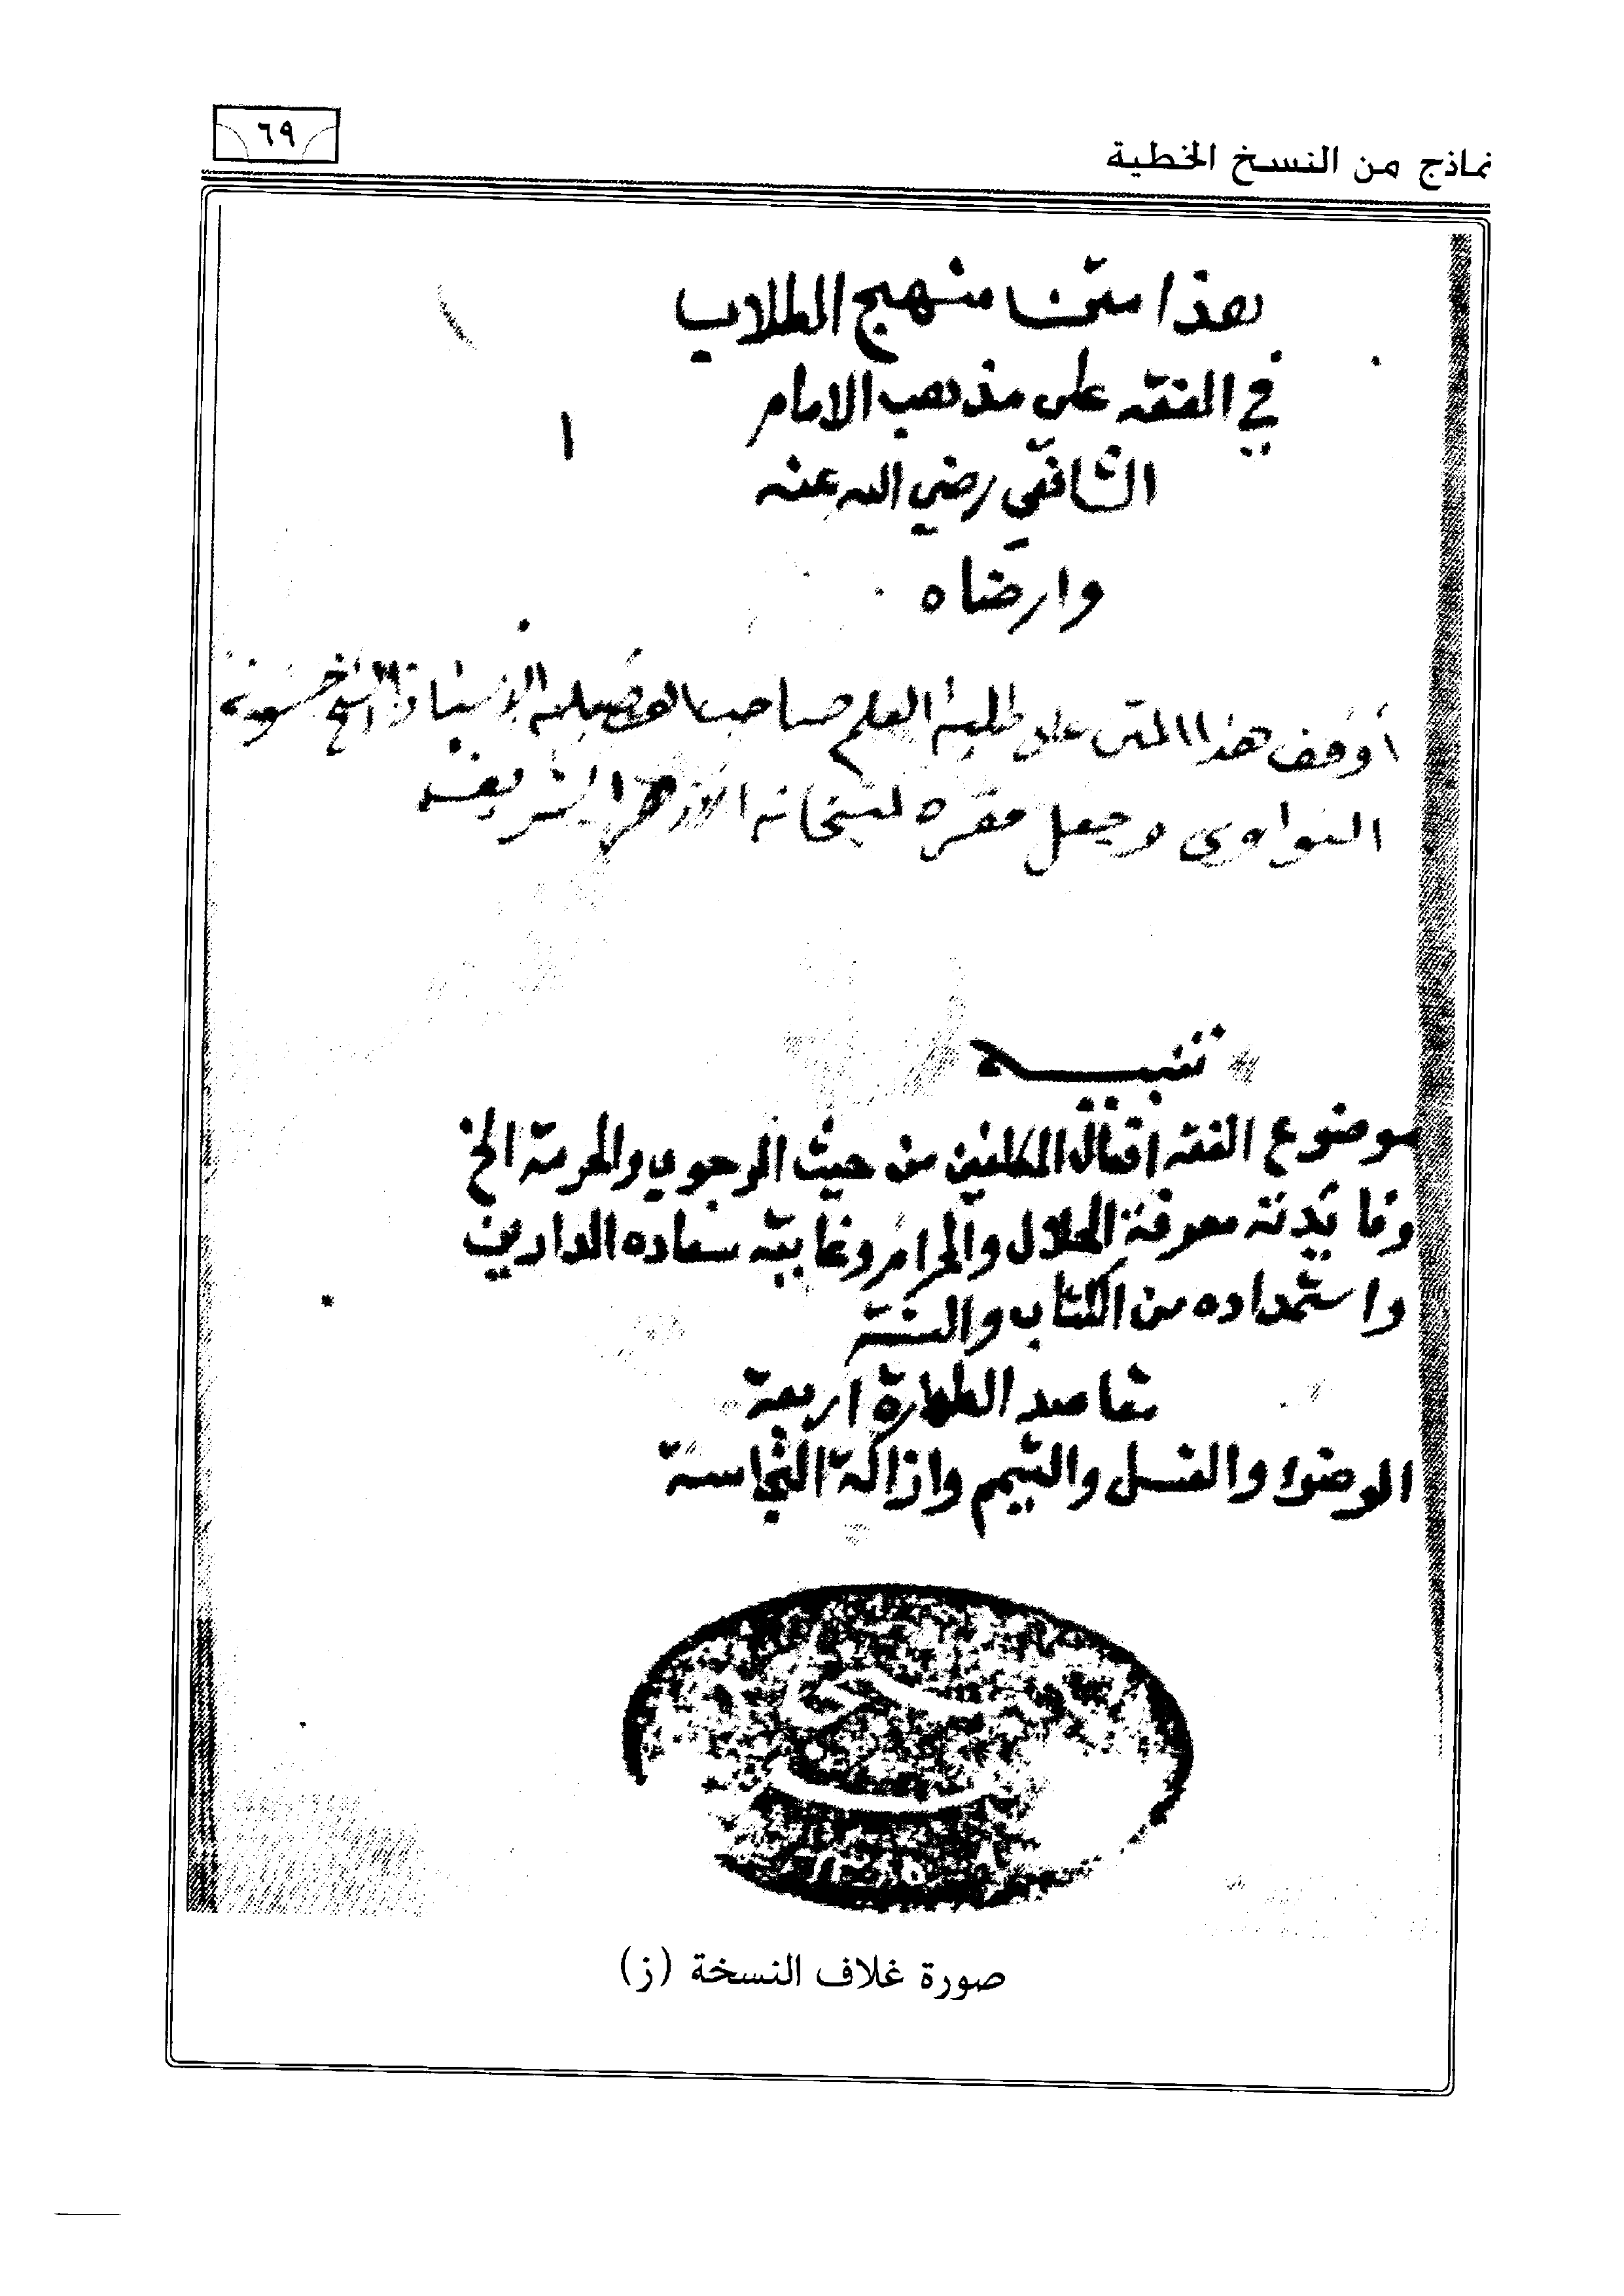 نماذج من النسخ الخطية
٦٩
هذا متن منهج الطلاب
في الفقه على مذهب الامام
الشافعي رضي الله عنه
وارضاه
١
أوقف هذا المتن على طلبة العلم صاحب الفضيلة الأستاذ الشيخ حسونه
النواوى وجعل مقره كتبخانة الأزهر الشريف
تنبيه
موضوع الفقه افعال المكلفين من حيث الوجوب والحرمة الخ
وفايدته معرفة الحلال والحرام وغايته سعاده الدارين
واستمداده من الكتاب والسنة
مقاصد الطهارة اربعة
الوضوء والغسل والتيمم وازالة النجاسة
صورة غلاف النسخة (ز)